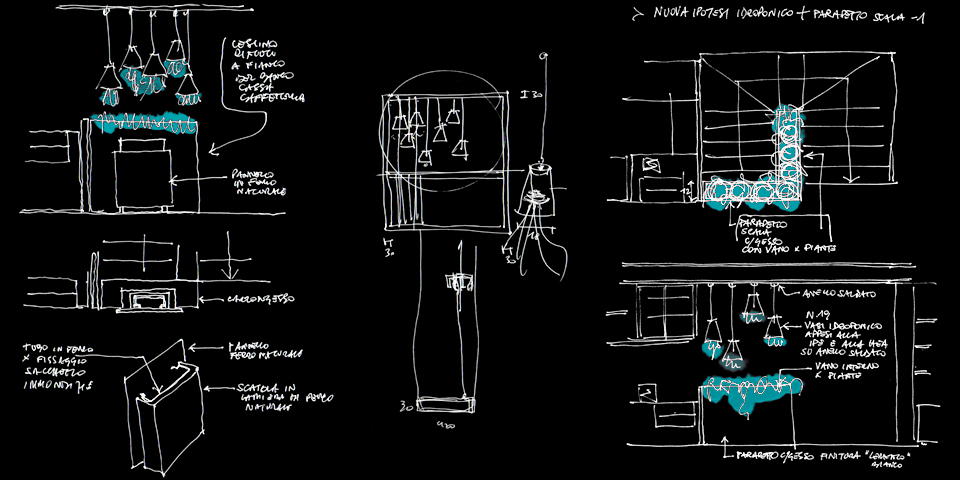 CESTINO
DI FUOCO
A FIANCO
BANCO
CASSA
CAFFETTERIA
PANNELLO
IN FERRO
NATURALE
CARTONGESSO
TUBO IN FERRO
X FISSAGGIO
SACCHETTO
IMMONDIZIE
PANNELLO
FERRO NATURALE
SCATOLA IN
LAMIERA DI FERRO
NATURALE
30
H
30
H
30
30
420
> NUOVA IPOTESI IDROPONICO + PARAPETTO SCALA -1
12
PARAPETTO
SCALA
C/GESSO
CON VANO X PIANTE
ANELLO SALDATO
N 19
VASI IDROPONICO
APPESI ALLA
IPE E ALLA HEA
SU ANELLO SALDATO
VANO INTERNO
X PIANTE
PARAPETTO C/GESSO FINITURA
BIANCO